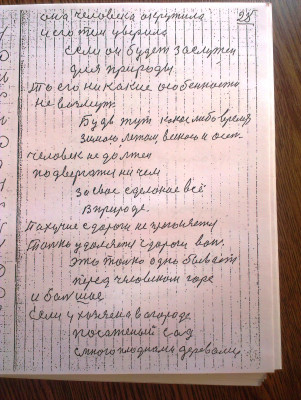 она человека окружила 28
и его тем уверила
если он будет заслужен
для природы
то его никакие особенности
не возмут.
Будь тут какое либо время
зимою, летом, весною и осен.
человек не должен
подвергатя ни чем
за свое сделоное всё
в природе.
сдароги не
только удоляетя сдароги вон.
это только одно бывает
перед человеком горе
и большое
Если у хозяена вагароде
посаженый сад
смногоплодными деревами